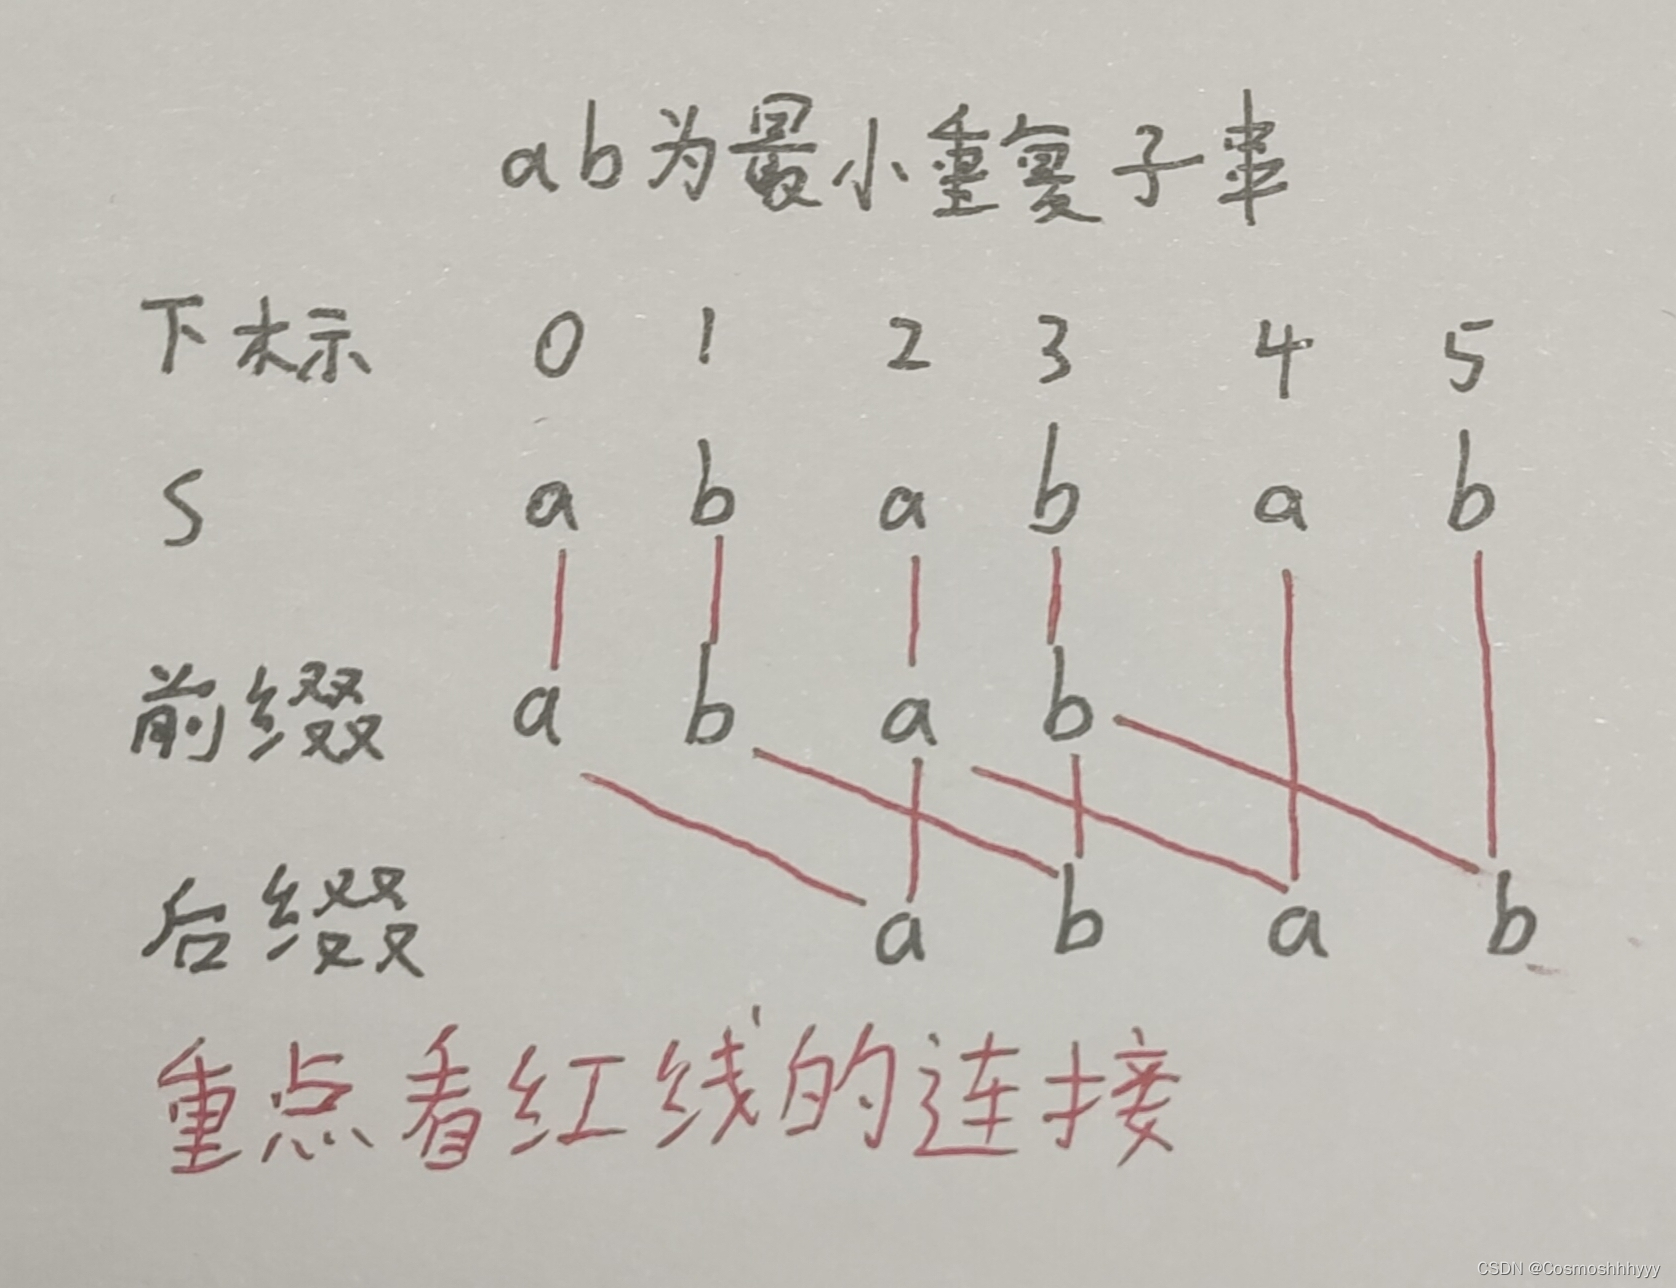 ab为最小重复子串
下标 0 1 2 3 4 5
S a b a b a b
前缀 a b a b
后缀 a b a b
重点看红线的连接
CSDN @Cosmoshhhyyy